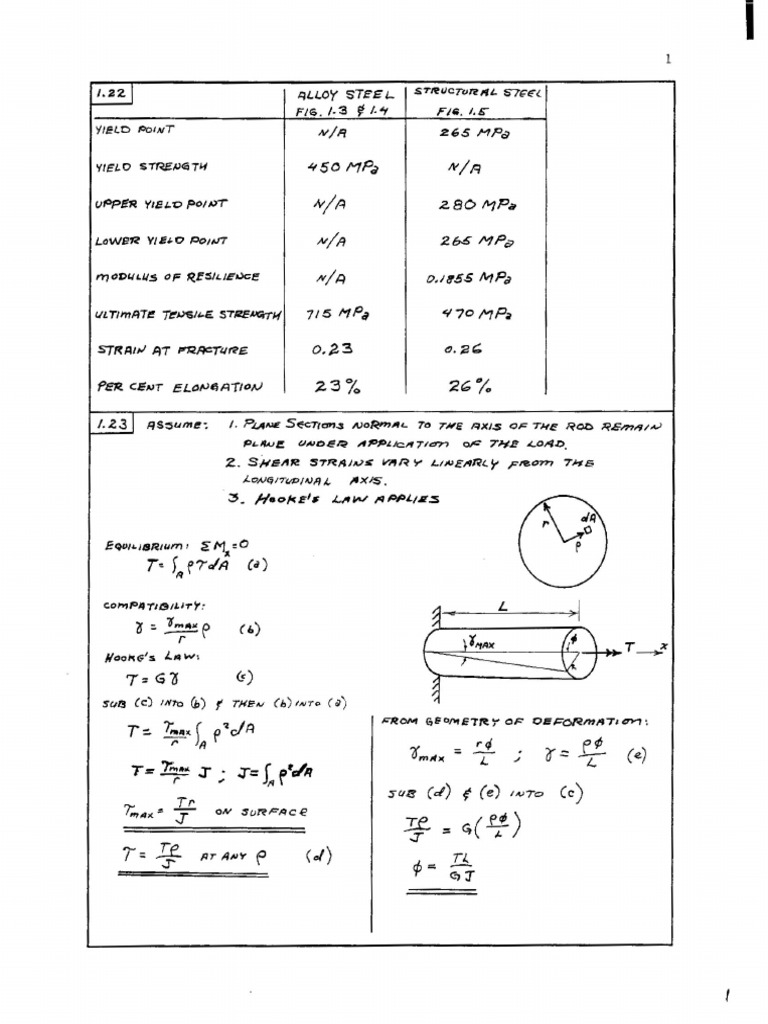 1
1.22 ALLOY STEEL STRUCTURAL STEEL
FIG. 1.3 & 1.4 FIG. 1.5
YIELD POINT N/A 265 MPa
YIELD STRENGTH 450 MPa N/A
UPPER YIELD POINT N/A 280 MPa
LOWER YIELD POINT N/A 265 MPa
MODULUS OF RESILIENCE N/A 0.1855 MPa
ULTIMATE TENSILE STRENGTH 715 MPa 470 MPa
STRAIN AT FRACTURE 0.23 0.26
PER CENT ELONGATION 23% 26%
1.23 ASSUME: 1. PLANE SECTIONS NORMAL TO THE AXIS OF THE ROD REMAIN
PLANE UNDER APPLICATION OF THE LOAD.
2. SHEAR STRAINS VARY LINEARLY FROM THE
LONGITUDINAL AXIS.
3. HOOKE'S LAW APPLIES
r dA
ρ
EQUILIBRIUM: ΣMₓ=0
T=∫_A ρτdA (a)
COMPATIBILITY:
γ = γMAX/r ρ (b)
HOOKE'S LAW:
τ = Gγ (c)
SUB (c) INTO (b) & THEN (b) INTO (a)
T = τMAX/r ∫_A ρ²dA
T = τMAX/r J ; J=∫_A ρ²dA
τMAX = Tr/J ON SURFACE
τ = Tρ/J AT ANY ρ (d)
L
γMAX φ T x
r
FROM GEOMETRY OF DEFORMATION:
γMAX = rφ/L ; γ = ρφ/L (e)
SUB (d) & (e) INTO (c)
Tρ/J = G(ρφ/L)
φ = TL/GJ
1